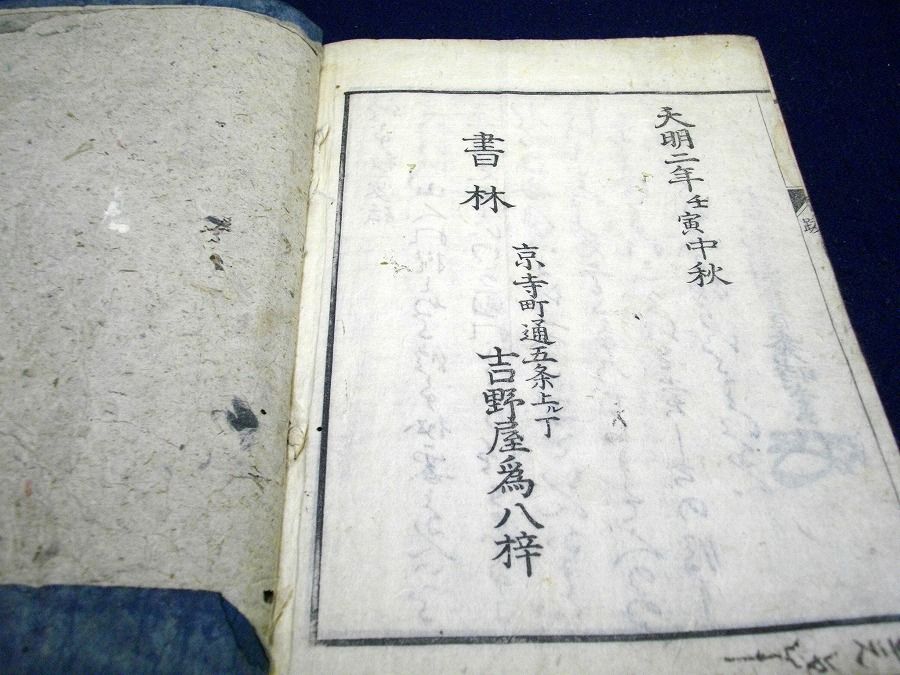 天明二年壬寅中秋
書林
京寺町通五条上ル丁
吉野屋為八梓
跋